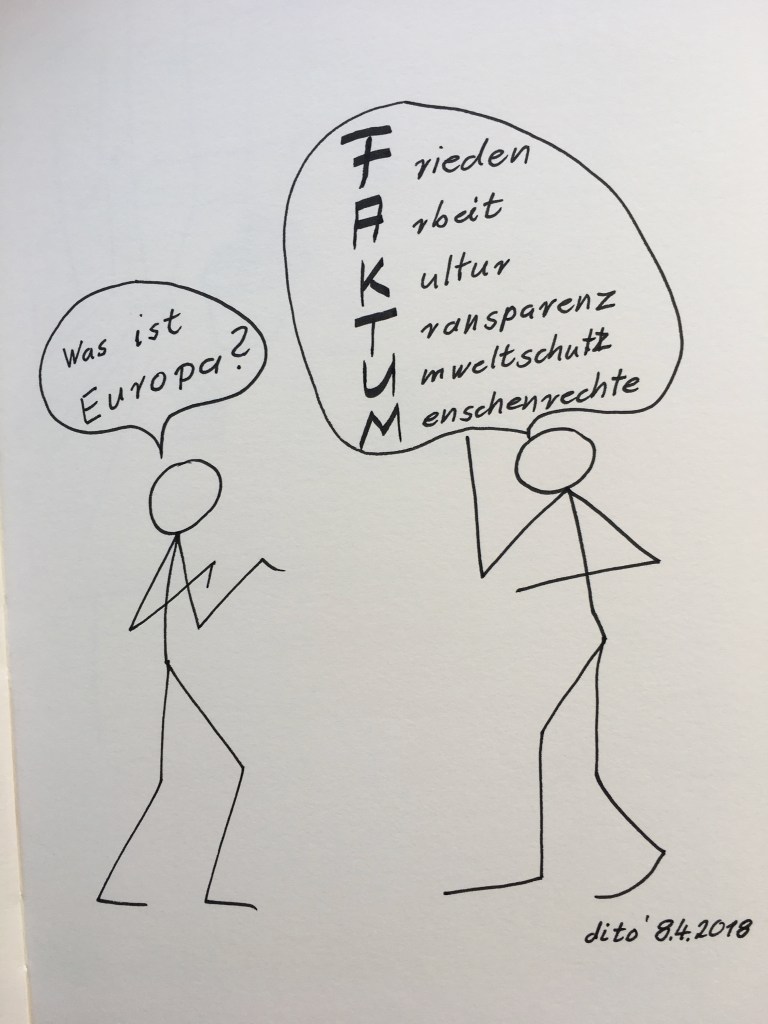 Was ist
Europa?
Frieden
Arbeit
Kultur
Transparenz
Umweltschutz
Menschenrechte
dito' 8.4.2018